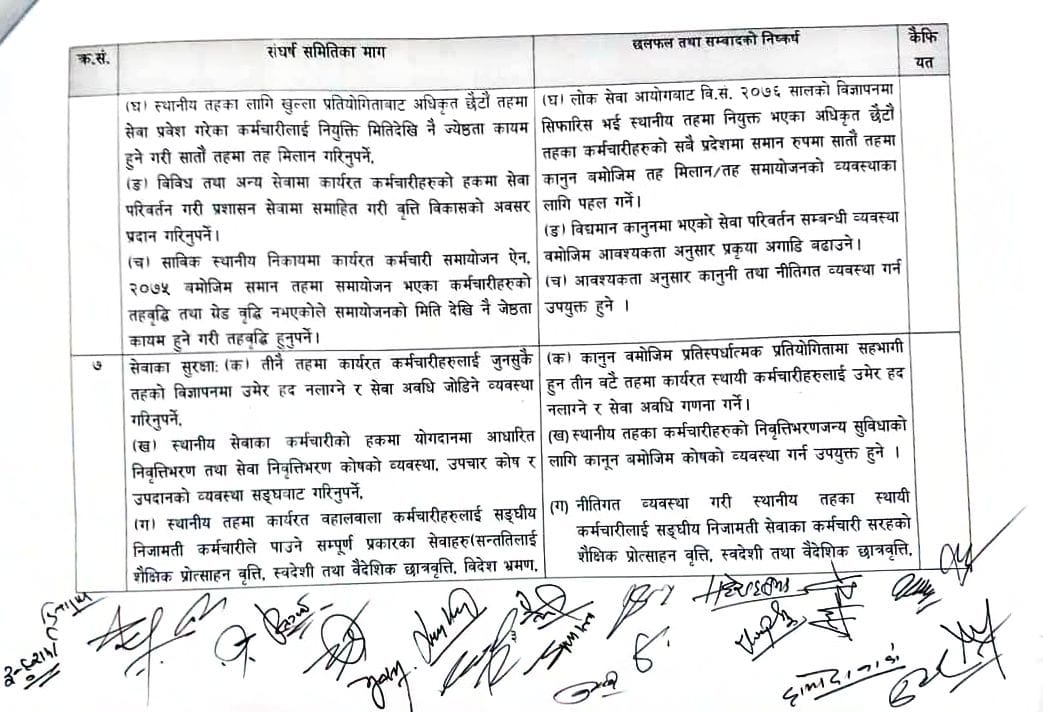 क्र.सं.
संघर्ष समितिका माग
छलफल तथा सम्बादको निष्कर्ष
कैफि
यत
(घ) स्थानीय तहका लागि खुल्ला प्रतियोगिताबाट अधिकृत छैटौं तहमा
सेवा प्रवेश गरेका कर्मचारीलाई नियुक्ति मितिदेखि नै ज्येष्ठता कायम
हुने गरी सातौं तहमा तह मिलान गरिनुपर्ने,
(ङ) विविध तथा अन्य सेवामा कार्यरत कर्मचारीहरुको हकमा सेवा
परिवर्तन गरी प्रशासन सेवामा समाहित गरी वृत्ति विकासको अवसर
प्रदान गरिनुपर्ने।
(च) साविक स्थानीय निकायमा कार्यरत कर्मचारी समायोजन ऐन,
२०७५ बमोजिम समान तहमा समायोजन भएका कर्मचारीहरुको
तहवृद्धि तथा ग्रेड वृद्धि नभएकोले समायोजनको मिति देखि नै जेष्ठता
कायम हुने गरी तहवृद्धि हुनुपर्ने।
(घ) लोक सेवा आयोगबाट वि.सं. २०७६ सालको विज्ञापनमा
सिफारिस भई स्थानीय तहमा नियुक्त भएका अधिकृत छैटौं
तहका कर्मचारीहरुको सबै प्रदेशमा समान रुपमा सातौं तहमा
कानुन बमोजिम तह मिलान/तह समायोजनको व्यवस्थाका
लागि पहल गर्ने।
(ङ) विद्यमान कानुनमा भएको सेवा परिवर्तन सम्बन्धी व्यवस्था
बमोजिम आवश्यकता अनुसार प्रकृया अगाडि बढाउने।
(च) आवश्यकता अनुसार कानुनी तथा नीतिगत व्यवस्था गर्न
उपयुक्त हुने ।
७
सेवाका सुरक्षा: (क) तीनै तहमा कार्यरत कर्मचारीहरुलाई जुनसुकै
तहको विज्ञापनमा उमेर हद नलाग्ने र सेवा अवधि जोडिने व्यवस्था
गरिनुपर्ने,
(ख) स्थानीय सेवाका कर्मचारीको हकमा योगदानमा आधारित
निवृत्तिभरण तथा सेवा निवृत्तिभरण कोषको व्यवस्था, उपचार कोष र
उपदानको व्यवस्था सङ्घबाट गरिनुपर्ने,
(ग) स्थानीय तहमा कार्यरत बहालवाला कर्मचारीहरुलाई सङ्घीय
निजामती कर्मचारीले पाउने सम्पूर्ण प्रकारका सेवाहरु(सन्ततिलाई
शैक्षिक प्रोत्साहन वृत्ति, स्वदेशी तथा वैदेशिक छात्रवृत्ति, विदेश भ्रमण,
(क) कानुन बमोजिम प्रतिस्पर्धात्मक प्रतियोगितामा सहभागी
हुन तीन वटै तहमा कार्यरत स्थायी कर्मचारीहरुलाई उमेर हद
नलाग्ने र सेवा अवधि गणना गर्ने।
(ख) स्थानीय तहका कर्मचारीहरुको निवृत्तिभरणजन्य सुविधाको
लागि कानून बमोजिम कोषको व्यवस्था गर्न उपयुक्त हुने ।
(ग) नीतिगत व्यवस्था गरी स्थानीय तहका स्थायी
कर्मचारीलाई सङ्घीय निजामती सेवाका कर्मचारी सरहको
शैक्षिक प्रोत्साहन वृत्ति, स्वदेशी तथा वैदेशिक छात्रवृत्ति,